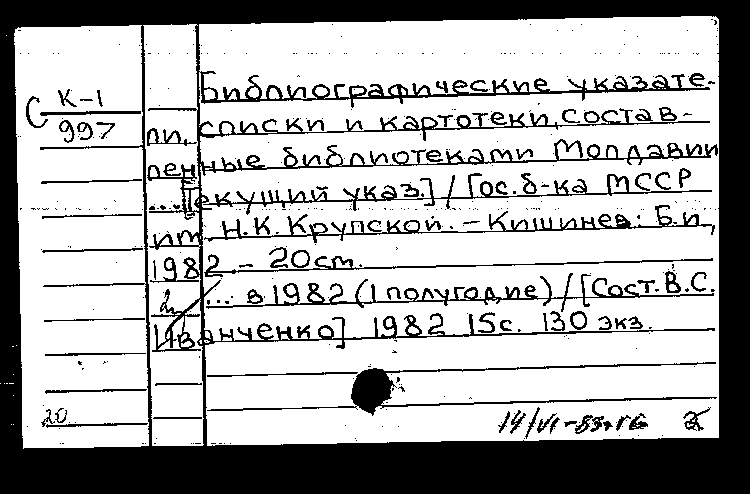 Библиографические указате-
С К-1
997
ли, списки и картотеки, состав-
ленные библиотеками Молдавии
... [екущий указ.] / Гос. б-ка МССР
им. Н.К. Крупской. – Кишинев: Б.и.,
1982 – 20 см.
... в 1982 (1 полугодие) / [Сост. В.С.
Иванченко] 1982 15с. 130 экз.
20